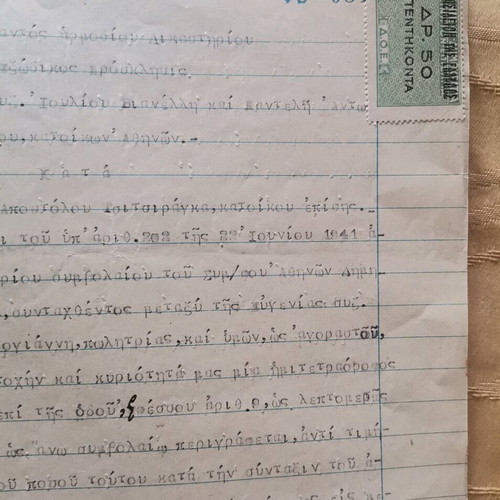 αντός ἁρμοδίου Δικαστηρίου
Ἐξώδικος πρόσκλησις
συζ. Ἰουλίου Βιανέλλη καί Παντελῆ Ἀντω
ου, κατοίκων Ἀθηνῶν.-
Κ α τ ά
Ἀποστόλου Τσιτσιράγκα, κατοίκου ἐπίσης.-
ι τοῦ ὑπ' ἀριθ. 202 τῆς 22 Ἰουνίου 1941 ἀ-
ρίου συμβολαίου τοῦ Συμ/φου Ἀθηνῶν Δημη-
, συνταχθέντος μεταξύ τῆς Εὐγενίας συζ.
ργιάννη, πωλητρίας, καί ὑμῶν, ὡς ἀγοραστοῦ,
τοχήν καί κυριότητά μας μία ἡμιτετραόροφος
ἐπί τῆς ὁδοῦ Ἐφέσου ἀριθ. 9, ὡς λεπτομερῶς
ὡς ἄνω συμβολαίῳ περιγράφεται, ἀντί τιμή-
οῦ ποσοῦ τούτου κατά τήν σύνταξιν τοῦ ἀ-
ΔΡ. 50
ΠΕΝΤΗΚΟΝΤΑ